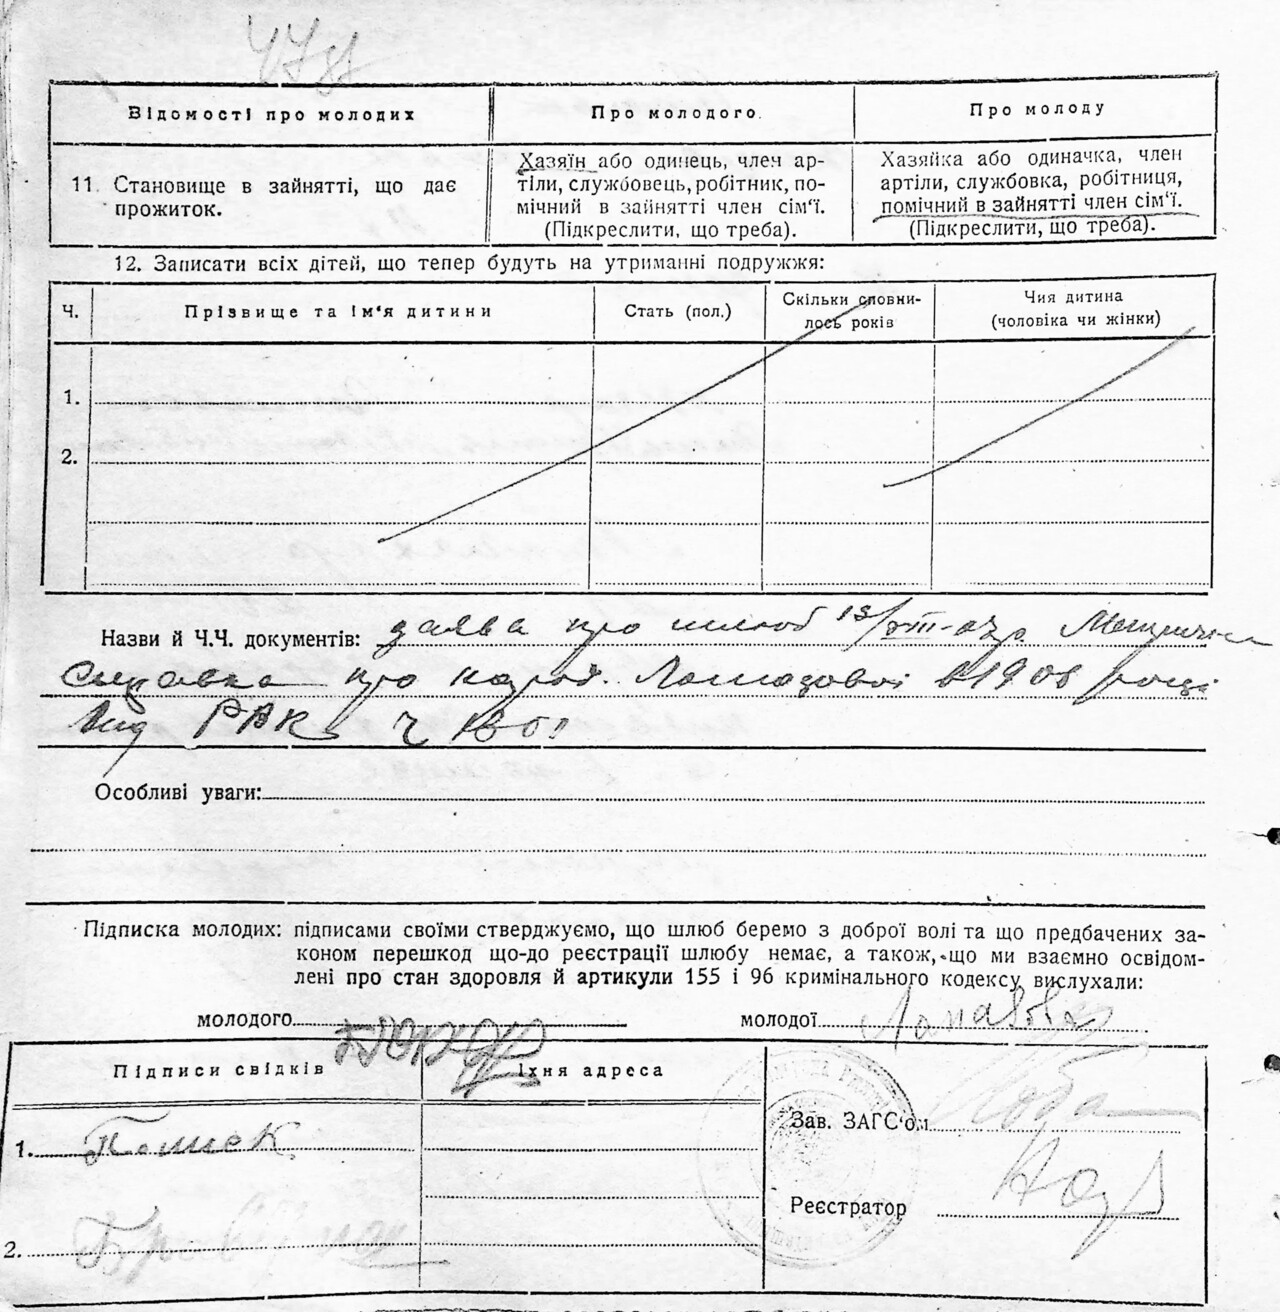 Відомості про молодих
Про молодого.
Про молоду
11. Становище в зайнятті, що дає
прожиток.
Хазяїн або одинець, член ар-
тіли, службовець, робітник, по-
мічний в зайнятті член сім‘ї.
(Підкреслити, що треба).
Хазяйка або одиначка, член
артіли, службовка, робітниця,
помічний в зайнятті член сім‘ї.
(Підкреслити, що треба).
12. Записати всіх дітей, що тепер будуть на утриманні подружжя:
Ч.
Прізвище та ім‘я дитини
Стать (пол.)
Скільки сповни-
лось років
Чия дитина
(чоловіка чи жінки)
1.
2.
Назви й Ч.Ч. документів: заява про шлюб
справка про народ. в 1908 році
Вид РАК
Особливі уваги:
Підписка молодих: підписами своїми стверджуємо, що шлюб беремо з доброї волі та що предбачених за-
коном перешкод що-до реєстрації шлюбу немає, а також, що ми взаємно освідом-
лені про стан здоровля й артикули 155 і 96 кримінального кодексу вислухали:
молодого
молодої
Підписи свідків
Їхня адреса
1.
2.
Зав. ЗАГС‘ом
Реєстратор